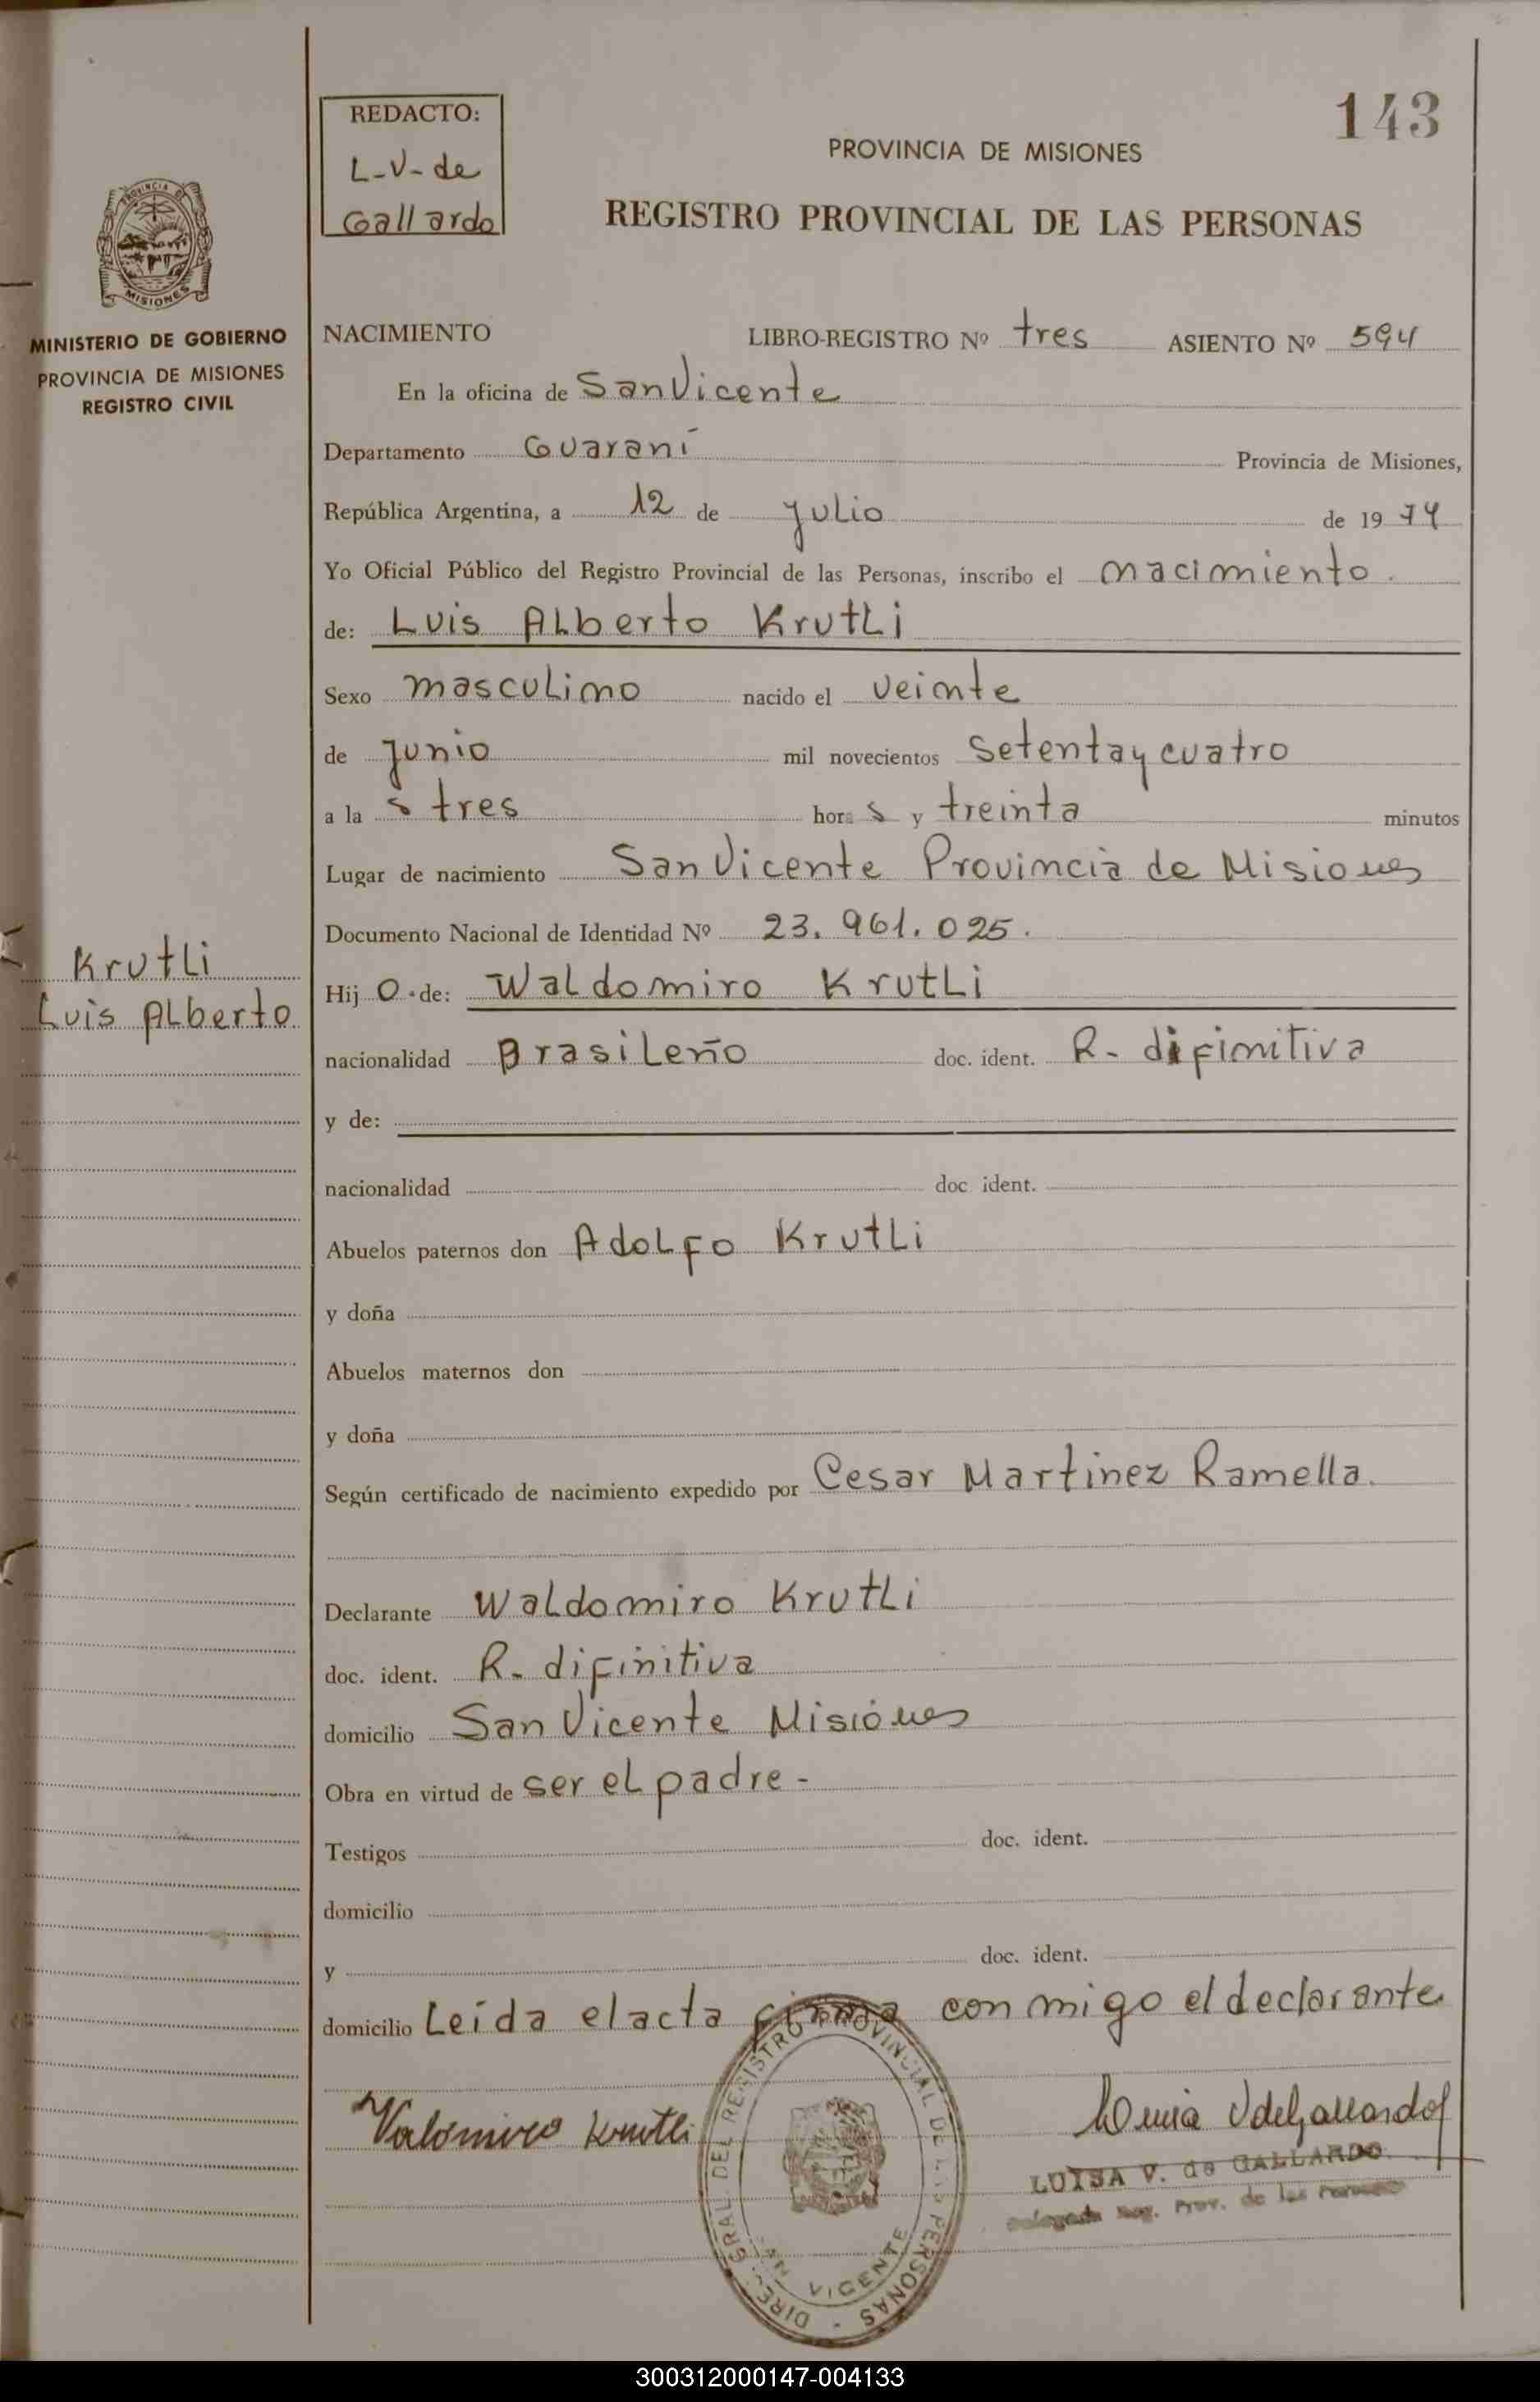 143
REDACTO:
L-V-de
Gallardo
PROVINCIA DE MISIONES
REGISTRO PROVINCIAL DE LAS PERSONAS
PROVINCIA DE
MISIONES
MINISTERIO DE GOBIERNO
PROVINCIA DE MISIONES
REGISTRO CIVIL
NACIMIENTO LIBRO-REGISTRO Nº tres ASIENTO Nº 594
En la oficina de San Vicente
Departamento Guaraní Provincia de Misiones,
República Argentina, a 12 de Julio de 1974
Yo Oficial Público del Registro Provincial de las Personas, inscribo el nacimiento.
de: Luis Alberto Krutli
Sexo masculino nacido el veinte
de Junio mil novecientos Setenta y cuatro
a la s tres horas y treinta minutos
Lugar de nacimiento San Vicente Provincia de Misiones
Documento Nacional de Identidad Nº 23.961.025.
Krutli
Luis Alberto
Hijo de: Waldomiro Krutli
nacionalidad Brasileño doc. ident. R- difinitiva
y de:
nacionalidad doc. ident.
Abuelos paternos don Adolfo Krutli
y doña
Abuelos maternos don
y doña
Según certificado de nacimiento expedido por Cesar Martinez Ramella.
Declarante Waldomiro Krutli
doc. ident. R- difinitiva
domicilio San Vicente Misiones
Obra en virtud de ser el padre-
Testigos doc. ident.
domicilio
y doc. ident.
domicilio Leída el acta firma conmigo el declarante
Valdmiro Krutli
LUISA V. de GALLARDO
Delegada Reg. Prov. de las Personas
DIREC. GRAL. DEL REGISTRO PROVINCIAL DE LAS PERSONAS
SAN VICENTE
300312000147-004133